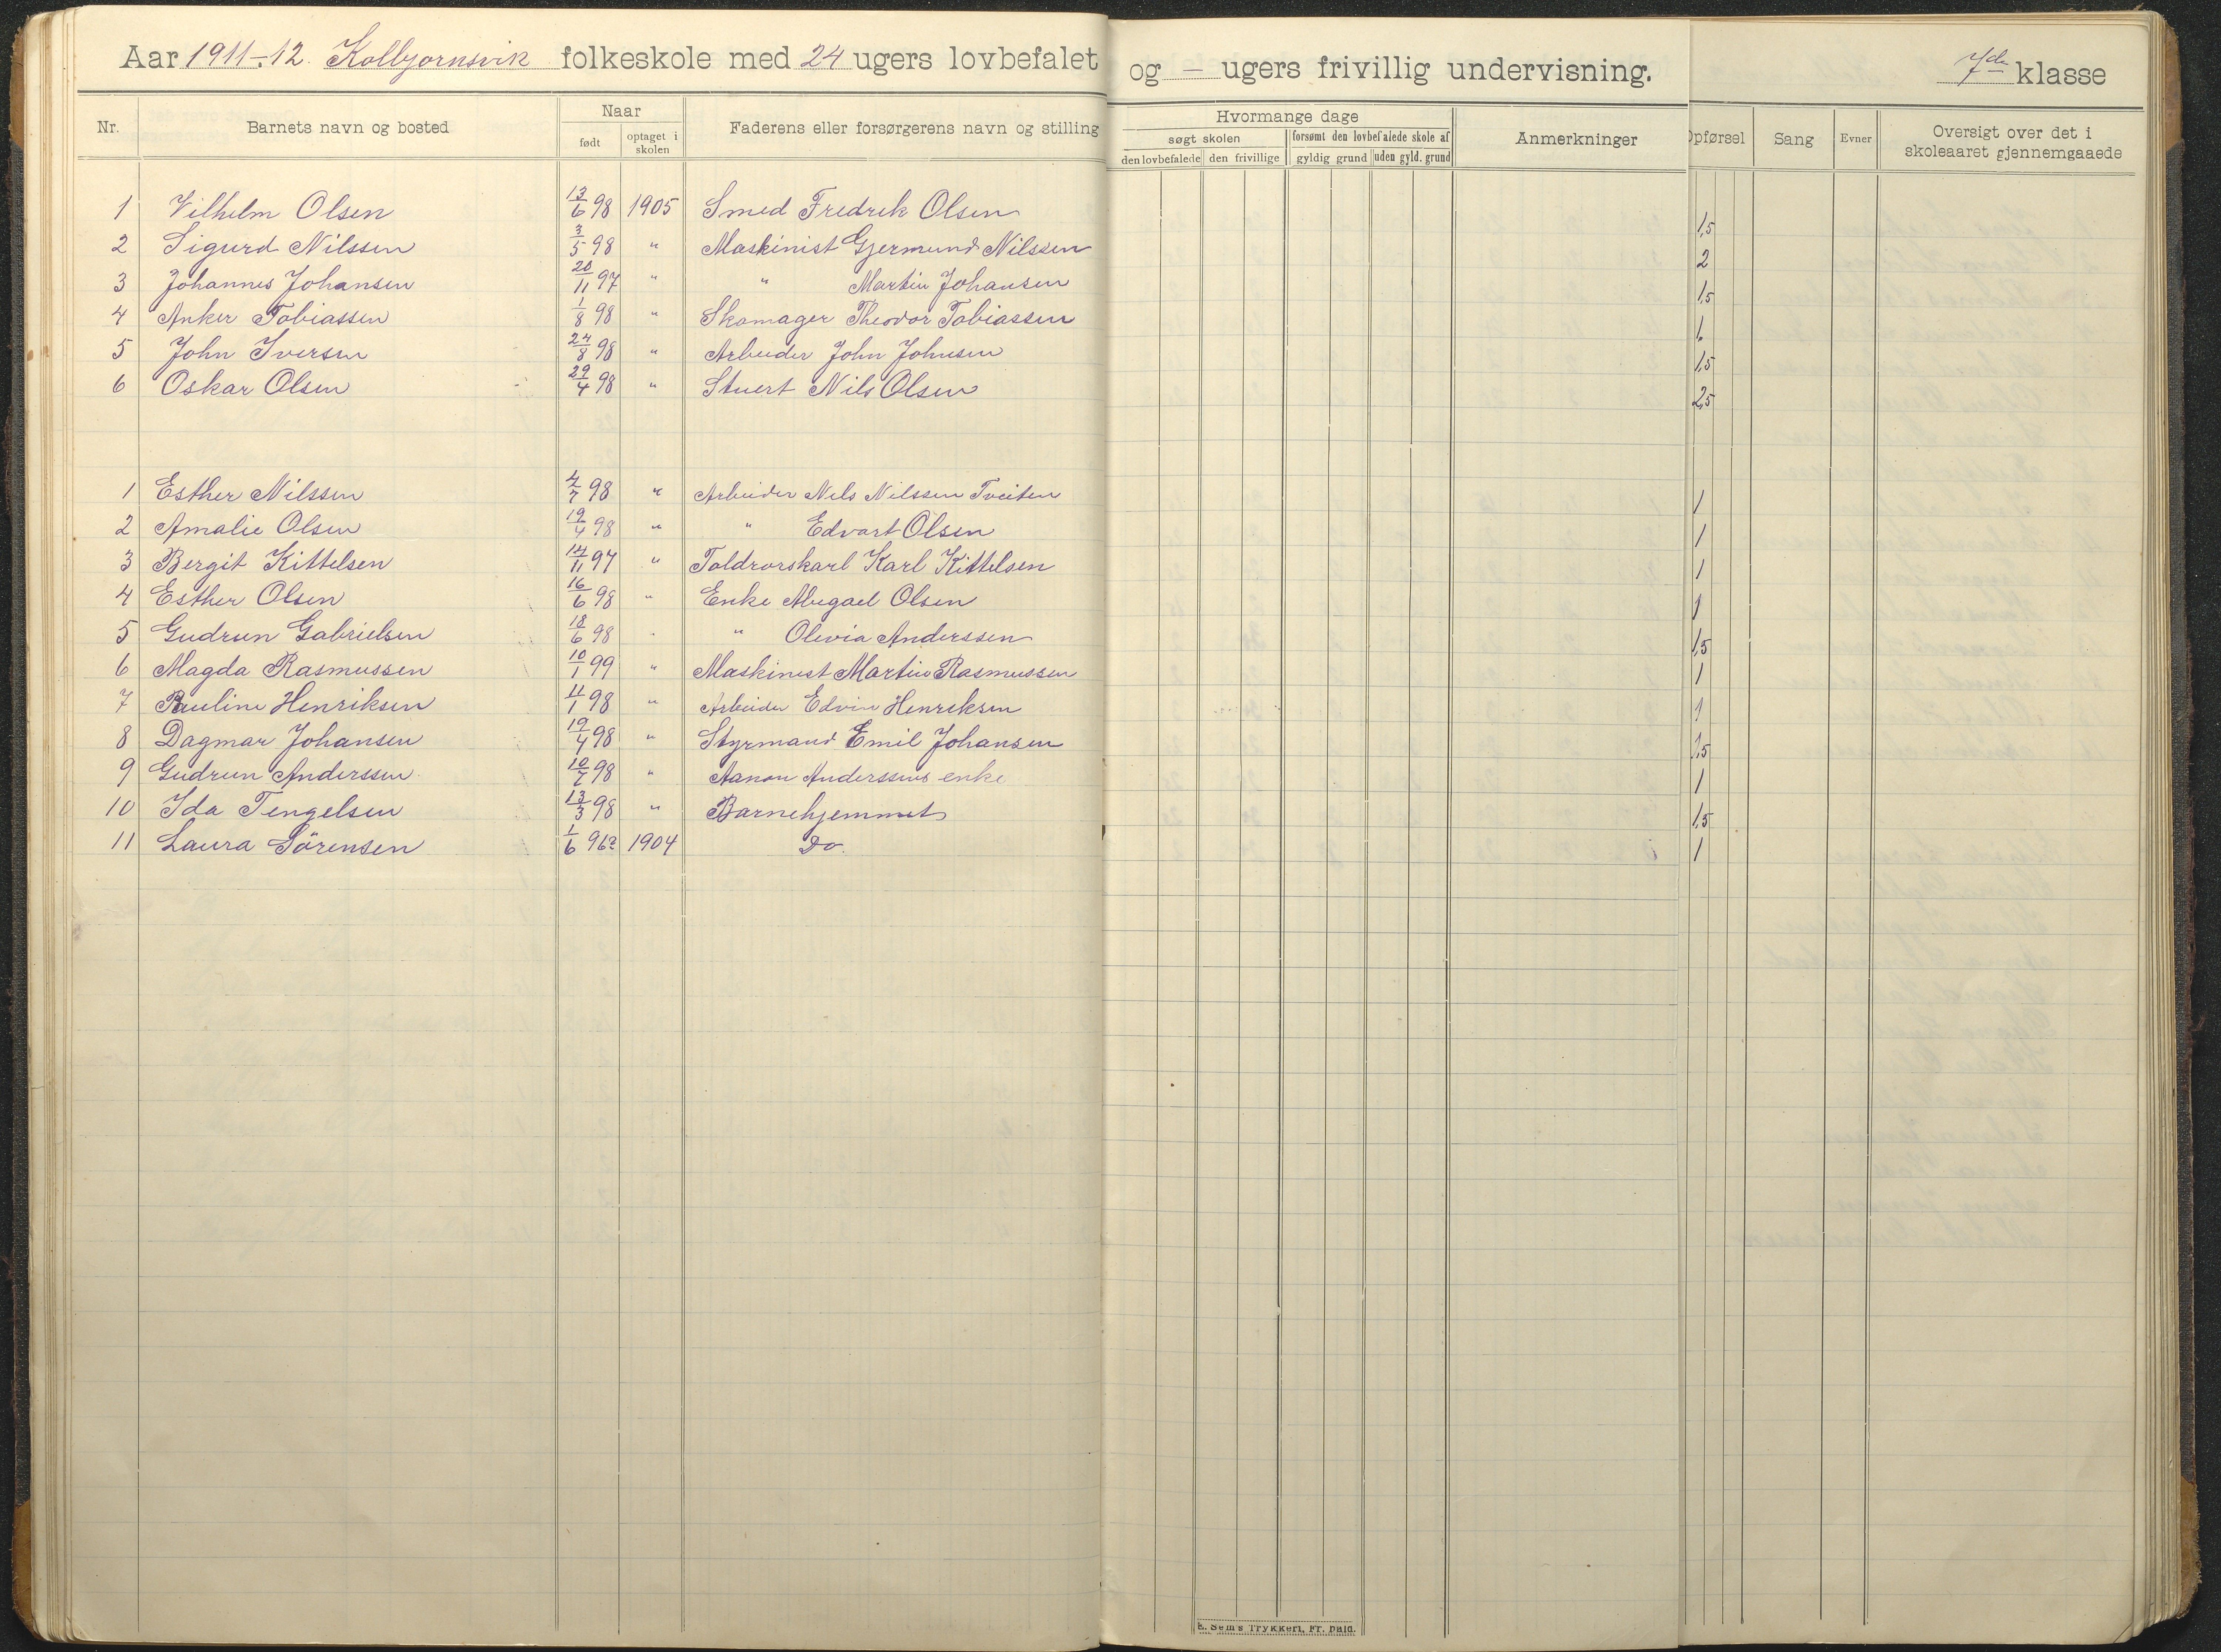 Aar 1911-12. Kolbjørnsvik folkeskole med 24 ugers lovbefalet og - ugers frivillig undervisning. 7de klasse
Nr. Barnets navn og bosted Naar født optaget i skolen Faderens eller forsørgerens navn og stilling Hvormange dage søgt skolen den lovbefalede den frivillige forsømt den lovbefalede skole af gyldig grund uden gyld. grund Anmerkninger Opførsel Sang Evner Oversigt over det i skoleaaret gjennemgaaede
1 Vilhelm Olsen 13/6 98 1905 Smed Fredrik Olsen 1,5
2 Sigurd Nilssen 3/5 98 " Maskinist Gjermund Nilssen 2
3 Johannes Johansen 20/11 97 " " Martin Johansen 1,5
4 Anker Tobiassen 1/8 98 " Skomager Theodor Tobiassen 1
5 John Iversen 24/8 98 " Arbeider John Johnsen 1,5
6 Oskar Olsen 29/4 98 " Stuert Nils Olsen 2,5
1 Esther Nilssen 4/7 98 " Arbeider Nils Nilssen Tveiten 1
2 Amalie Olsen 19/4 98 " " Edvart Olsen 1
3 Bergit Kittelsen 14/11 97 " Toldrorskarl Karl Kittelsen 1
4 Esther Olsen 16/6 98 " Enke Abegael Olsen 1
5 Gudrun Gabrielsen 18/6 98 " " Olevia Anderssen 1,5
6 Magda Rasmussen 10/1 99 " Maskinist Martin Rasmussen 1
7 Pauline Henriksen 4/1 98 " Arbeider Edvin Henreksen 1
8 Dagmar Johansen 19/4 98 " Styrmand Emil Johansen 1,5
9 Gudrun Anderssen 10/7 98 " Aanon Anderssens enke 1
10 Ida Tengelsen 13/3 98 " Barnehjemmet 1,5
11 Laura Sörensen 1/6 96? 1904 Do. 1
E. Sem's Trykkeri, Fr. hald.